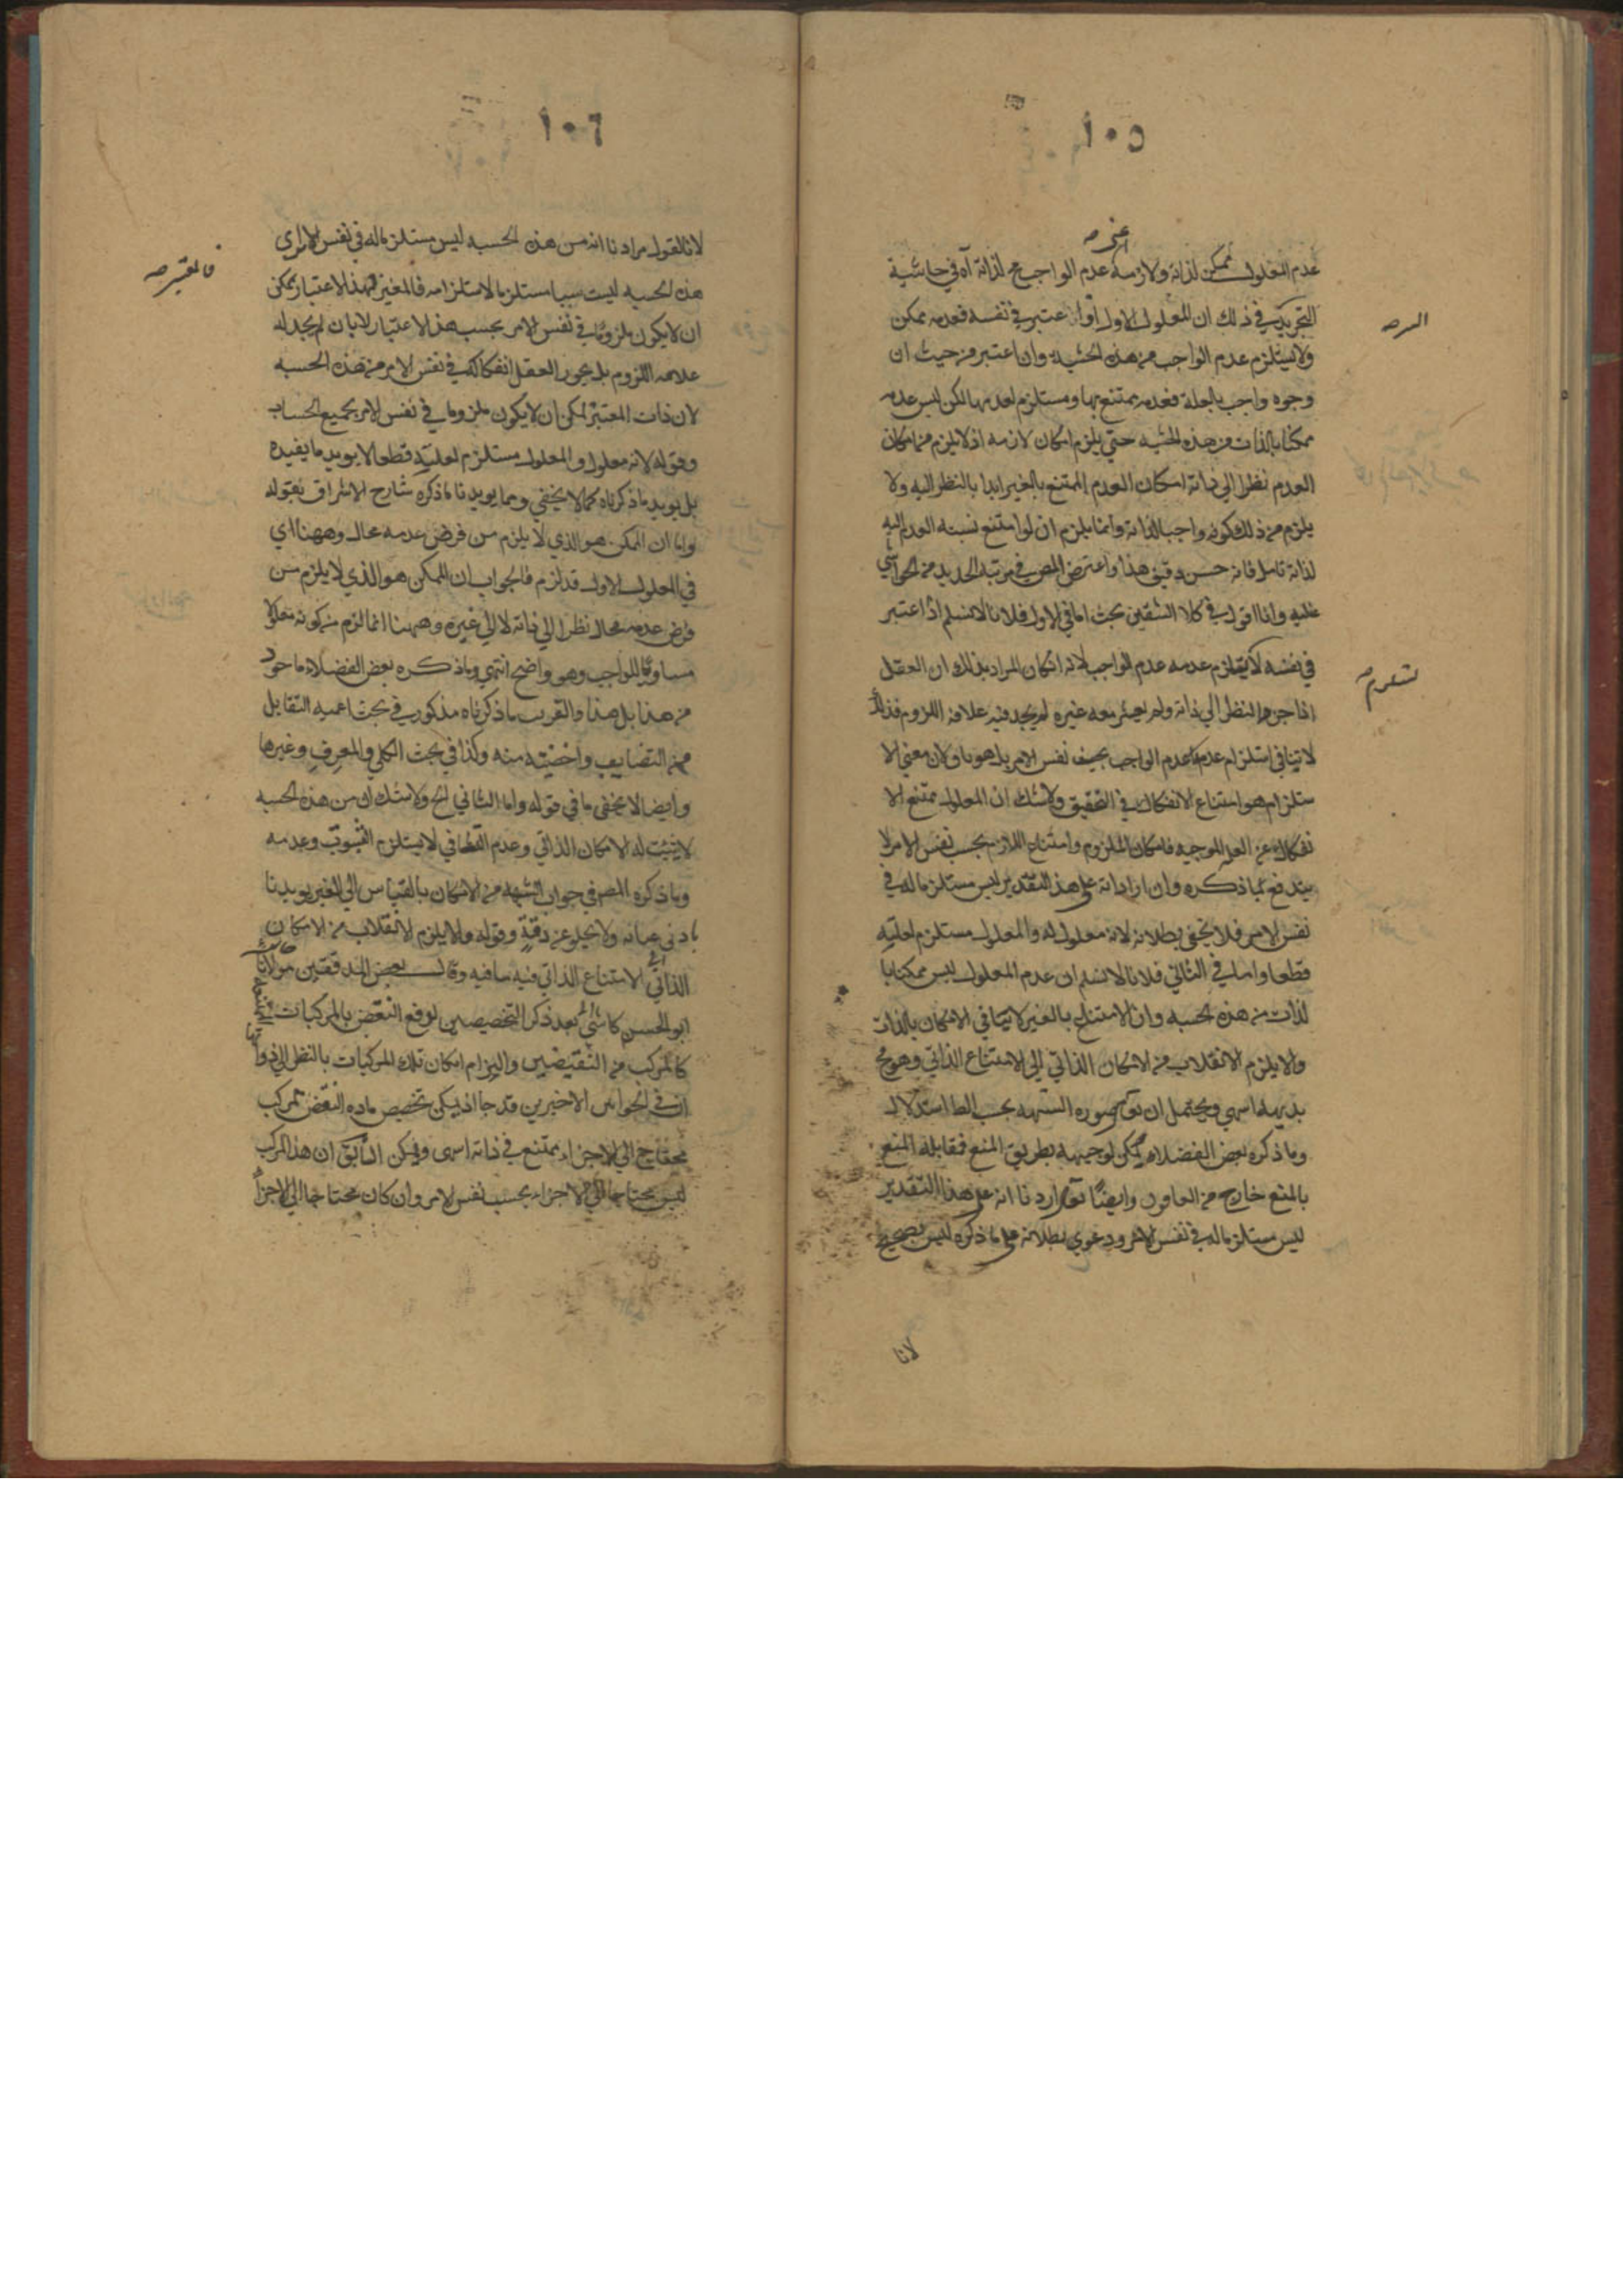 ١٠٥
عدم المعلول ممكن لذاته ولازمه عدم الواجب مح لذاته اه في حاشية
التجريد في ذلك ان المعلول الاول اذا اعتبر في نفسه فعدمه ممكن
ولا يستلزم عدم الواجب من هذه الحيثية وان اعتبر من حيث ان
وجوه واجب بالعلة فعدمه ممتنع بها ومستلزم لعدمها لكن ليس عدمه
ممكنا بالذات من هذه الحيثيه حتى يلزم امكان لازمه اذ لا يلزم من امكان
العدم نظرا الى ذاته امكان العدم الممتنع بالغير ابدا بالنظر اليه ولا
يلزم من ذلك كونه واجبا لذاته وانما يلزم ان لو امتنع نسبة العدم اليه
لذاته تامل فانه حسن دقيق هذا واعترض المص في مرتبه الجديد من الحواشي
عليه وانا اقول في كلا الشقين بحث اما في الاول فلانا لا نسلم اذا اعتبر
في نفسه لا يستلزم عدمه عدم الواجب لانه ان كان المراد بذلك ان العقل
اذا جرد النظر الى ذاته ولم يعتبر معه غيره لم يجد فيه علاقة اللزوم فذلك
لا ينافي استلزام عدمه عدم الواجب بحسب نفس الامر بل هو باق لان معنى الا
ستلزام هو امتناع الانفكاك في التحقيق ولا شك ان المعلول ممتنع الا
نفكاك عن العلة الموجبه فامكان الملزوم وامتناع اللازم بحسب نفس الامر لا
يندفع بما ذكره وان اراد انه على هذا التقدير ليس مستلزما له في
نفس الامر فلا يخفى بطلانه لانه معلول له والمعلول مستلزم لعليته
قطعا واما في الثاني فلانا لا نسلم ان عدم المعلول ليس ممكنا با
لذات من هذه الحسبه وان الامتناع بالغير لا ينافي الامكان بالذات
والا يلزم الانقلاب من الامكان الذاتي الى الامتناع الذاتي وهو مح
بديهة انتهى ويحتمل ان صوره الشبهه بحسب الظ استدلال
وما ذكره بعض الفضلاء يمكن توجيهه بطريق المنع فمقابلة المنع
بالمنع خارج من القانون وايضا اردنا انه على هذا التقدير
ليس مستلزما له في نفس الامر ودعوى بطلانه على ما ذكره ليس بصحيح
لانا
١٠٦
لانا نقول مرادنا انه من هذه الحسبه ليس مستلزما له في نفس الامر اي
هذه الحسبه ليست سببا مستلزما لاستلزامه فالمغير لهذا الاعتبار يمكن
ان لا يكون ملزوما في نفس الامر بحسب هذا الاعتبار لا بان لم يجد له
علاقه اللزوم بل يجوز العقل انفكاكه في نفس الامر من هذه الحسبه
لان ذات المعتبر يمكن ان لا يكون ملزوما في نفس الامر بجميع الحسبات
وقوله لانه معلول والمعلول مستلزم لعليته قطعا لا يويد ما يفيده
بل يويد ما ذكرناه كما لا يخفى ومما يويدنا ما ذكره شارح الاشراق بقوله
واما ان الممكن هو الذي لا يلزم من فرض عدمه محال وههنا اي
في المعلول الاول قد لزم فالجواب ان الممكن هو الذي لا يلزم من
فرض عدمه محال نظرا الى ذاته لا الى غيره وههنا انما لزم من كونه معلولا
مساويا للواجب وهو واضح انتهى وما ذكره بعض الفضلاء ماخوذ
من هذا بل هذا والقريب ما ذكرناه مذكور في بحث اعميه التقابل
من التضايف واخصيته منه وكذا في بحث الكلي والمعرف وغيرها
وايضا لا يخفى ما في قوله واما الثاني الخ ولا شك ان من هذه الحسبه
لا يثبت له الامكان الذاتي وعدم التنافي لا يستلزم الثبوت وعدمه
وما ذكره المص في جواب الشبهه من الامكان بالقياس الى الغير يويدنا
بادنى عنايه ولا يخلو عن دقة وقوله والا يلزم الانقلاب من الامكان
الذاتي الى الامتناع الذاتي فيه ما فيه وقال بعض المدققين مولانا
ابو الحسن كاشي بعد ذكر التخصيصين لرفع النقض بالمركبات
كالمركب من النقيضين والتزام امكان تلك المركبات بالنظر الى ذواتها
ان في الحواس الاخيرين قد جا اذ يمكن تخصيص ماده النقض بمركب
محتاج الى الاجزاء ممتنع في ذاته انتهى ويمكن ان يق ان هذا المركب
ليس محتاجا الى الاجزاء بحسب نفس الامر وان كان محتاجا الى الاجزاء